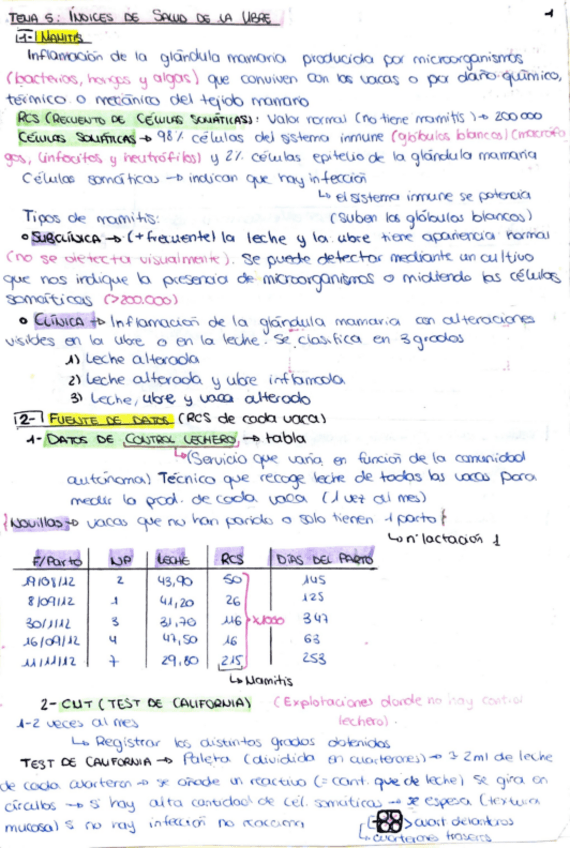 TEMA 5: ÍNDICES DE SALUD DE LA UBRE
1
1- MAMITIS
Inflamación de la glándula mamaria producida por microorganismos
(bacterias, hongos y algas) que conviven con las vacas o por daño químico,
térmico o mecánico del tejido mamario
RCS (RECUENTO DE CÉLULAS SOMÁTICAS): Valor normal (no tiene mamitis) → 200 000
CÉLULAS SOMÁTICAS → 98% células del sistema inmune (glóbulos blancos) (macrófa
gos, linfocitos y neutrófilos) y 2% células epitelio de la glándula mamaria
Células somáticas → indican que hay infección
↳ el sistema inmune se potencia
Tipos de mamitis:
(suben los glóbulos blancos)
• SUBCLÍNICA → (+ frecuente) la leche y la ubre tiene apariencia normal
(no se detecta visualmente). Se puede detectar mediante un cultivo
que nos indique la presencia de microorganismos o midiendo las células
somáticas (>200.000)
• CLÍNICA → Inflamación de la glándula mamaria con alteraciones
visibles en la ubre o en la leche. Se clasifica en 3 grados
1) Leche alterada
2) Leche alterada y ubre inflamada
3) Leche, ubre y vaca alterado
2- FUENTE DE DATOS (RCS de cada vaca)
1- DATOS DE CONTROL LECHERO, → tabla
↳ (Servicio que varia en función de la comunidad
autónoma) Técnico que recoge leche de todas las vacas para
medir la prod. de cada vaca (1 vez al mes)
{Novillas → vacas que no han parido o solo tienen 1 parto}
↳ nº lactación 1
F/Parto NP LECHE RCS DIAS DEL PARTO
19/08/12 2 43,90 50 145
8/09/12 1 41,20 26 125
30/1/12 3 31,70 116 x1000 347
16/09/12 4 47,50 16 63
11/11/12 7 29,80 215 253
↳ Mamitis
2- CMT (TEST DE CALIFORNIA) (Explotaciones donde no hay control
1-2 veces al mes lechero).
↳ Registrar los distintos grados obtenidos
TEST DE CALIFORNIA → Paleta (dividida en cuarterones) → 2ml de leche
de cada cuarteron → se añade un reactivo (= cant. que de leche) Se gira en
círculos → si hay alta cantidad de cél. somáticas → se espesa (textura
mucosa) si no hay infección no reacciona
> cuart delanteros
↳ cuarterones traseros